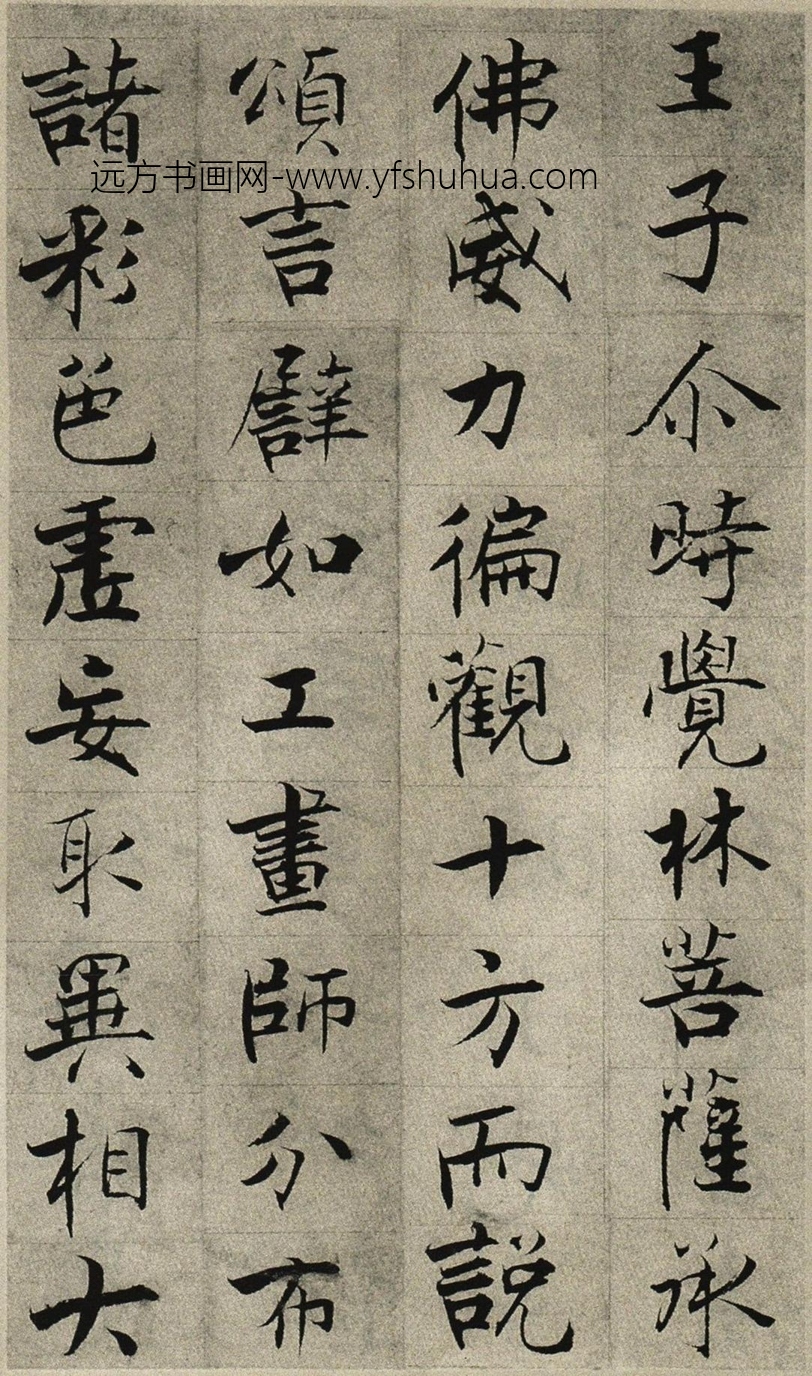 王子尒時覺林菩薩承
佛威力徧觀十方而說
頌言譬如工畫師分布
諸彩色虛妄取異相大
远方书画网-www.yfshuhua.com